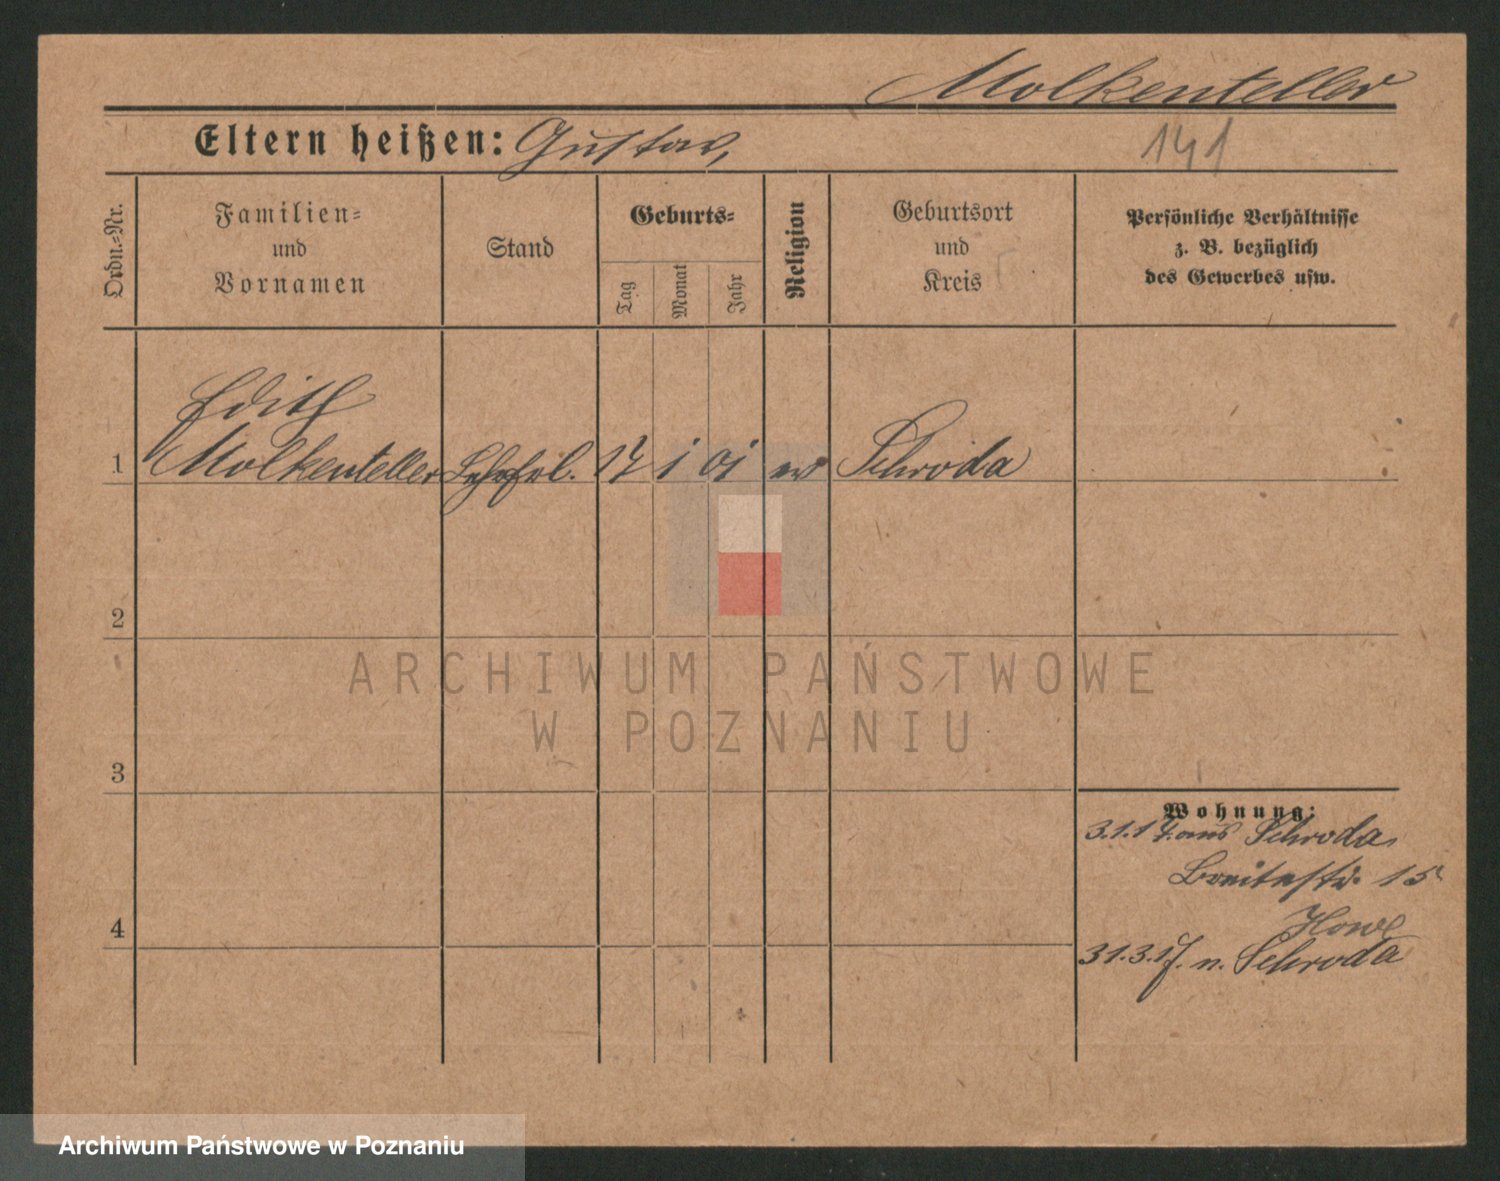 Molkenteller
Eltern heißen: Gustav,
141
Ordn.=Nr.
Familien=
und
Vornamen
Stand
Geburts=
Tag
Monat
Jahr
Religion
Geburtsort
und
Kreis
Persönliche Verhältnisse
z. B. bezüglich
des Gewerbes usw.
Edith
1 Molkenteller 17 1 01 ev Schroda
2
3
4
Wohnung:
3.1.17. aus Schroda
Breitestr. 15
31.3.17. n. Schroda
ARCHIWUM PAŃSTWOWE
W POZNANIU
Archiwum Państwowe w Poznaniu